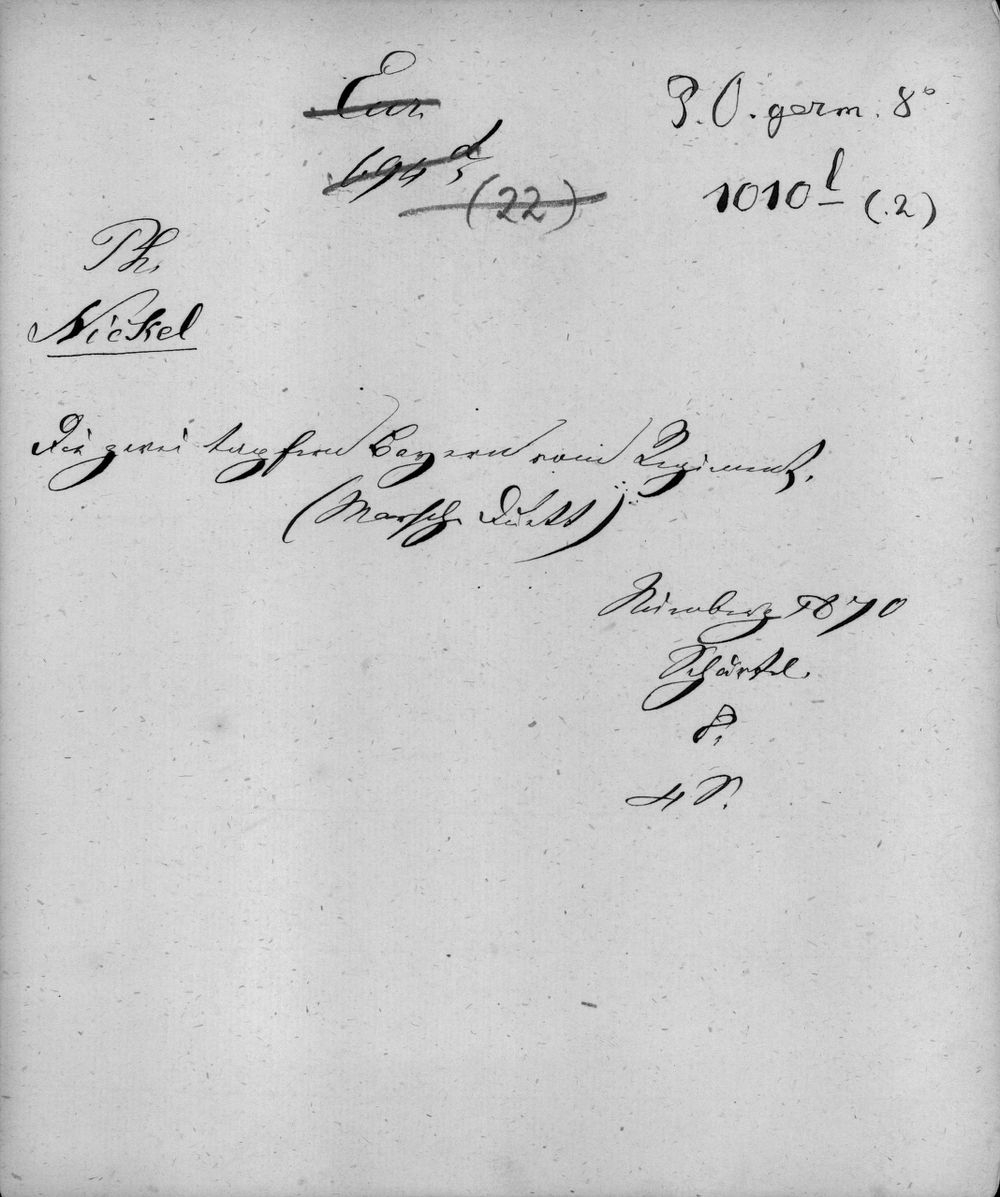 Eur.
P. O. germ. 8°
694 d/5
(22)
1010 l (.2)
Ph.
Nickel
Die zwei tapfern Bayern vom Regiment.
(Marsch Duett)
Nürnberg 1870
Schärtel.
8.
4 S.